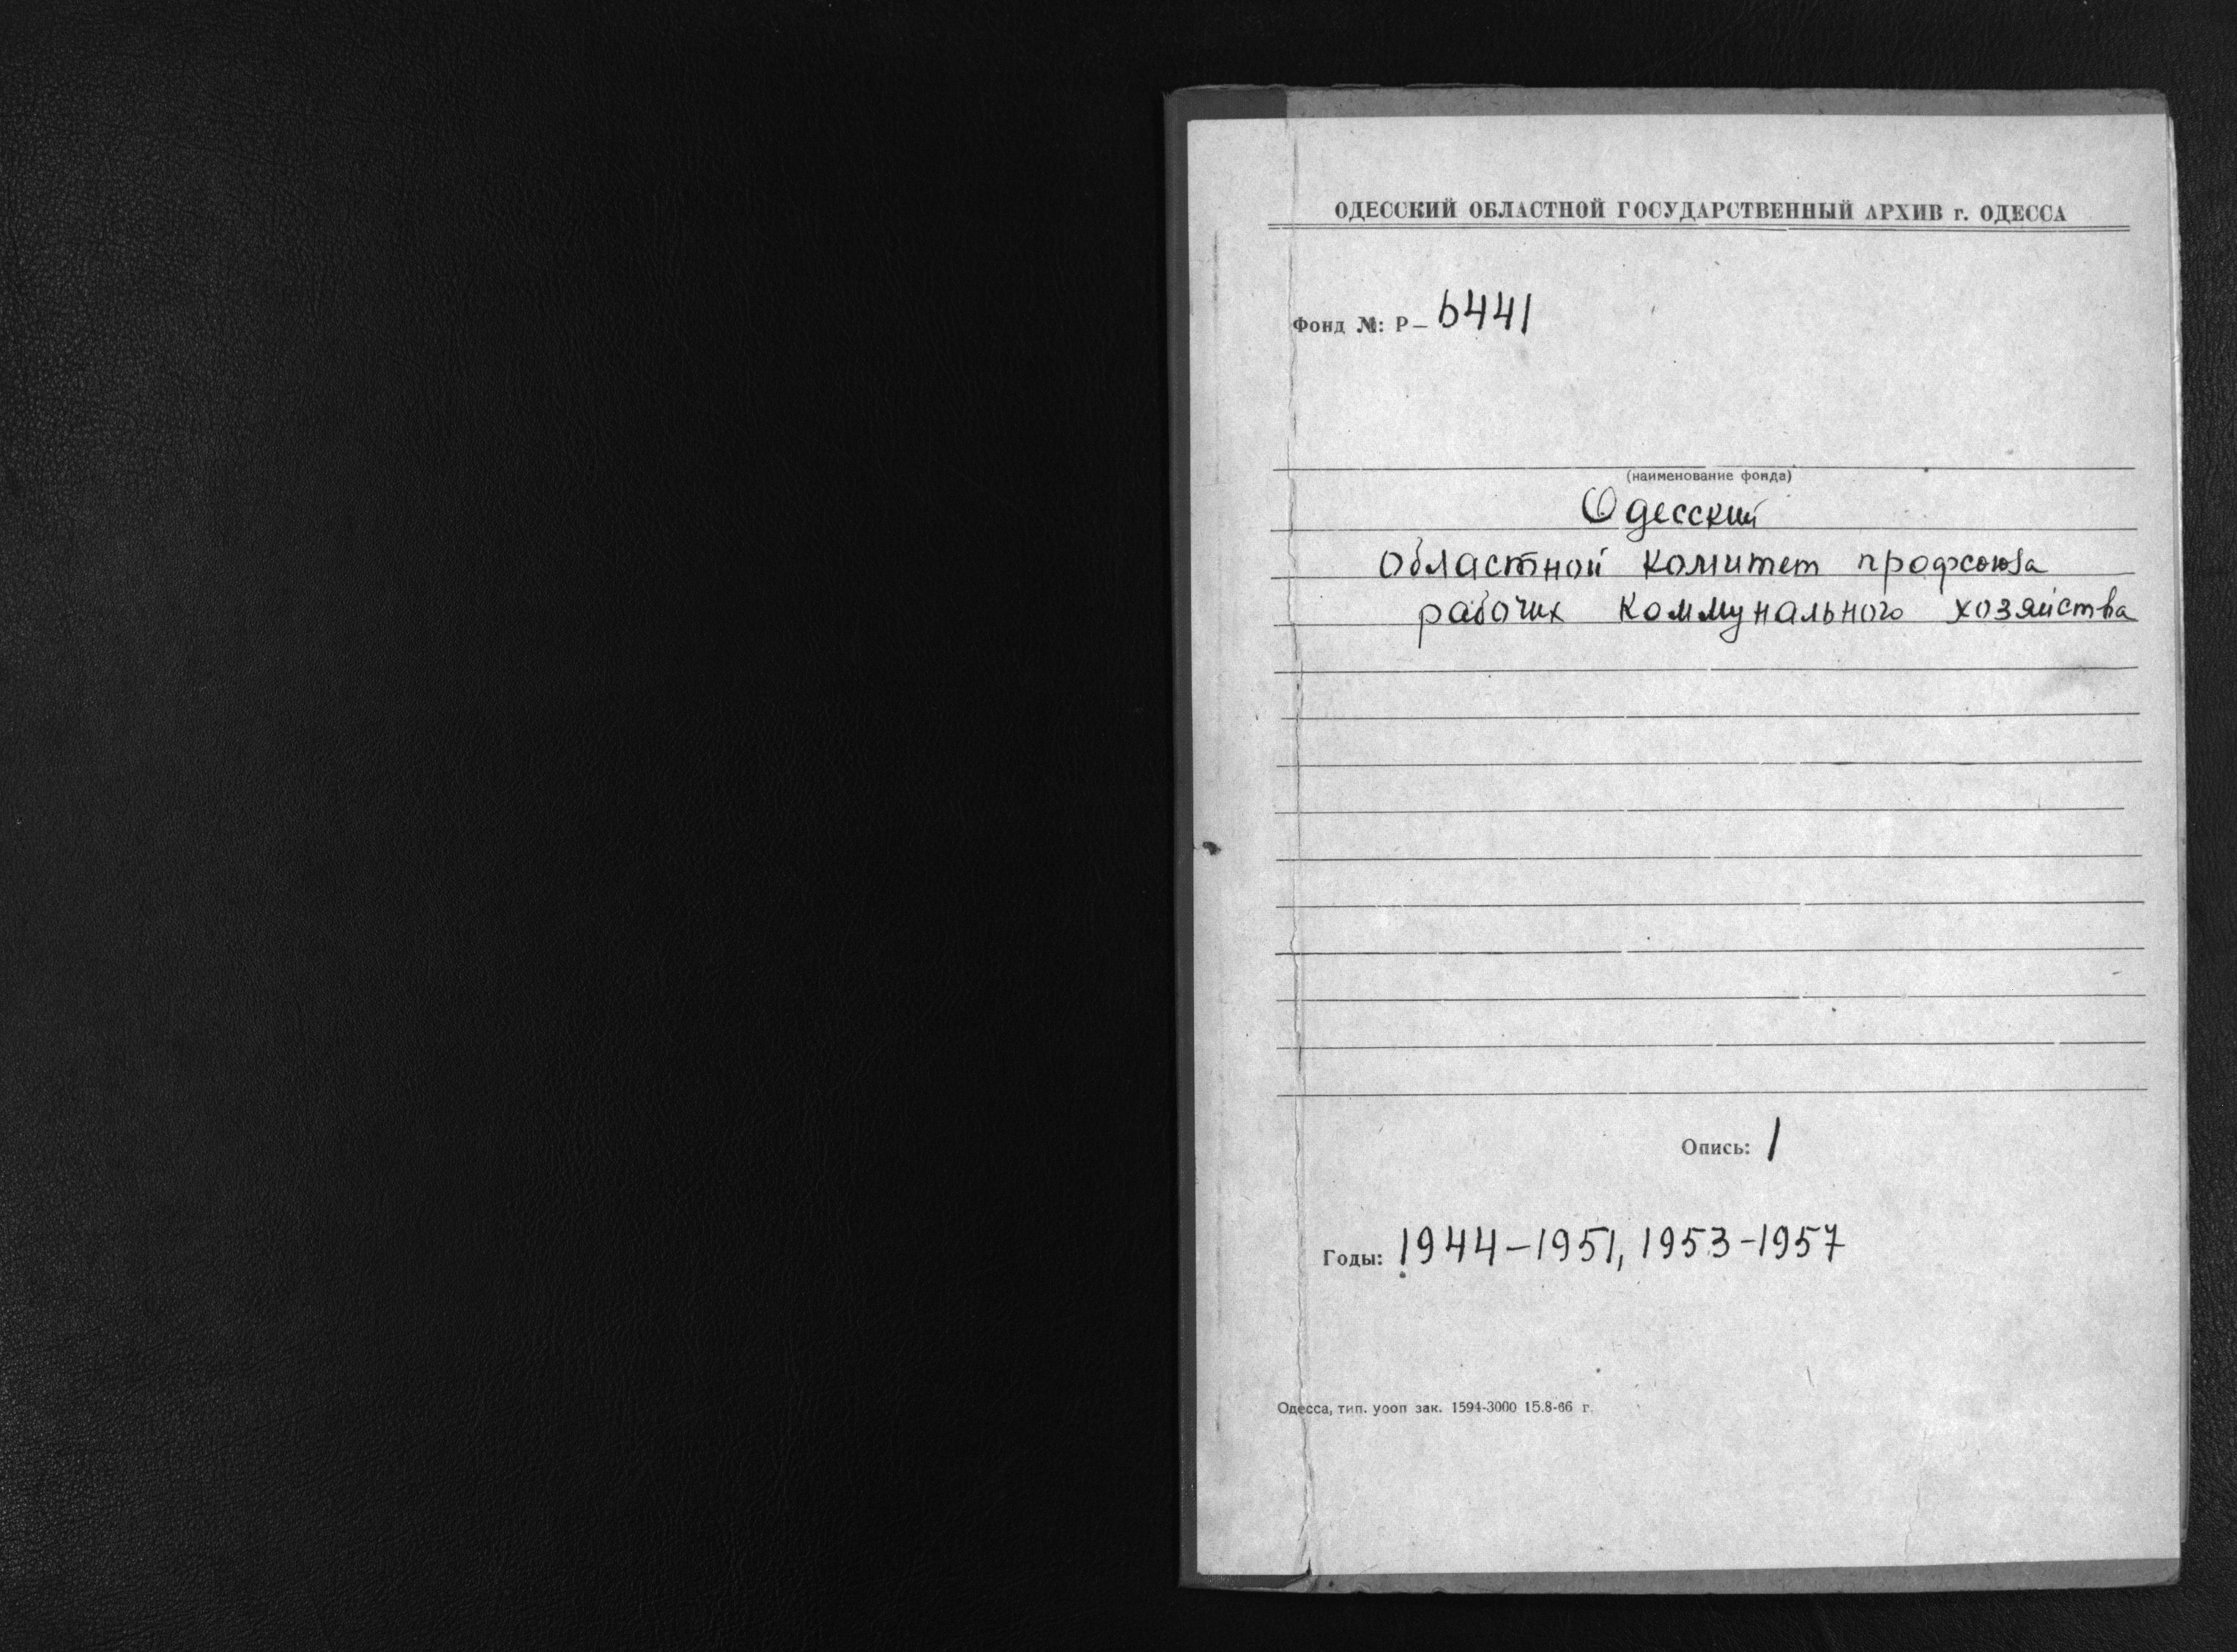 ОДЕССКИЙ ОБЛАСТНОЙ ГОСУДАРСТВЕННЫЙ АРХИВ г. ОДЕССА
Фонд №: Р- 6441
(наименование фонда)
Одесский
областной комитет профсоюза
рабочих коммунального хозяйства
Опись: 1
Годы: 1944-1951, 1953-1957
Одесса, тип. уооп зак. 1594-3000 15.8-66 г.